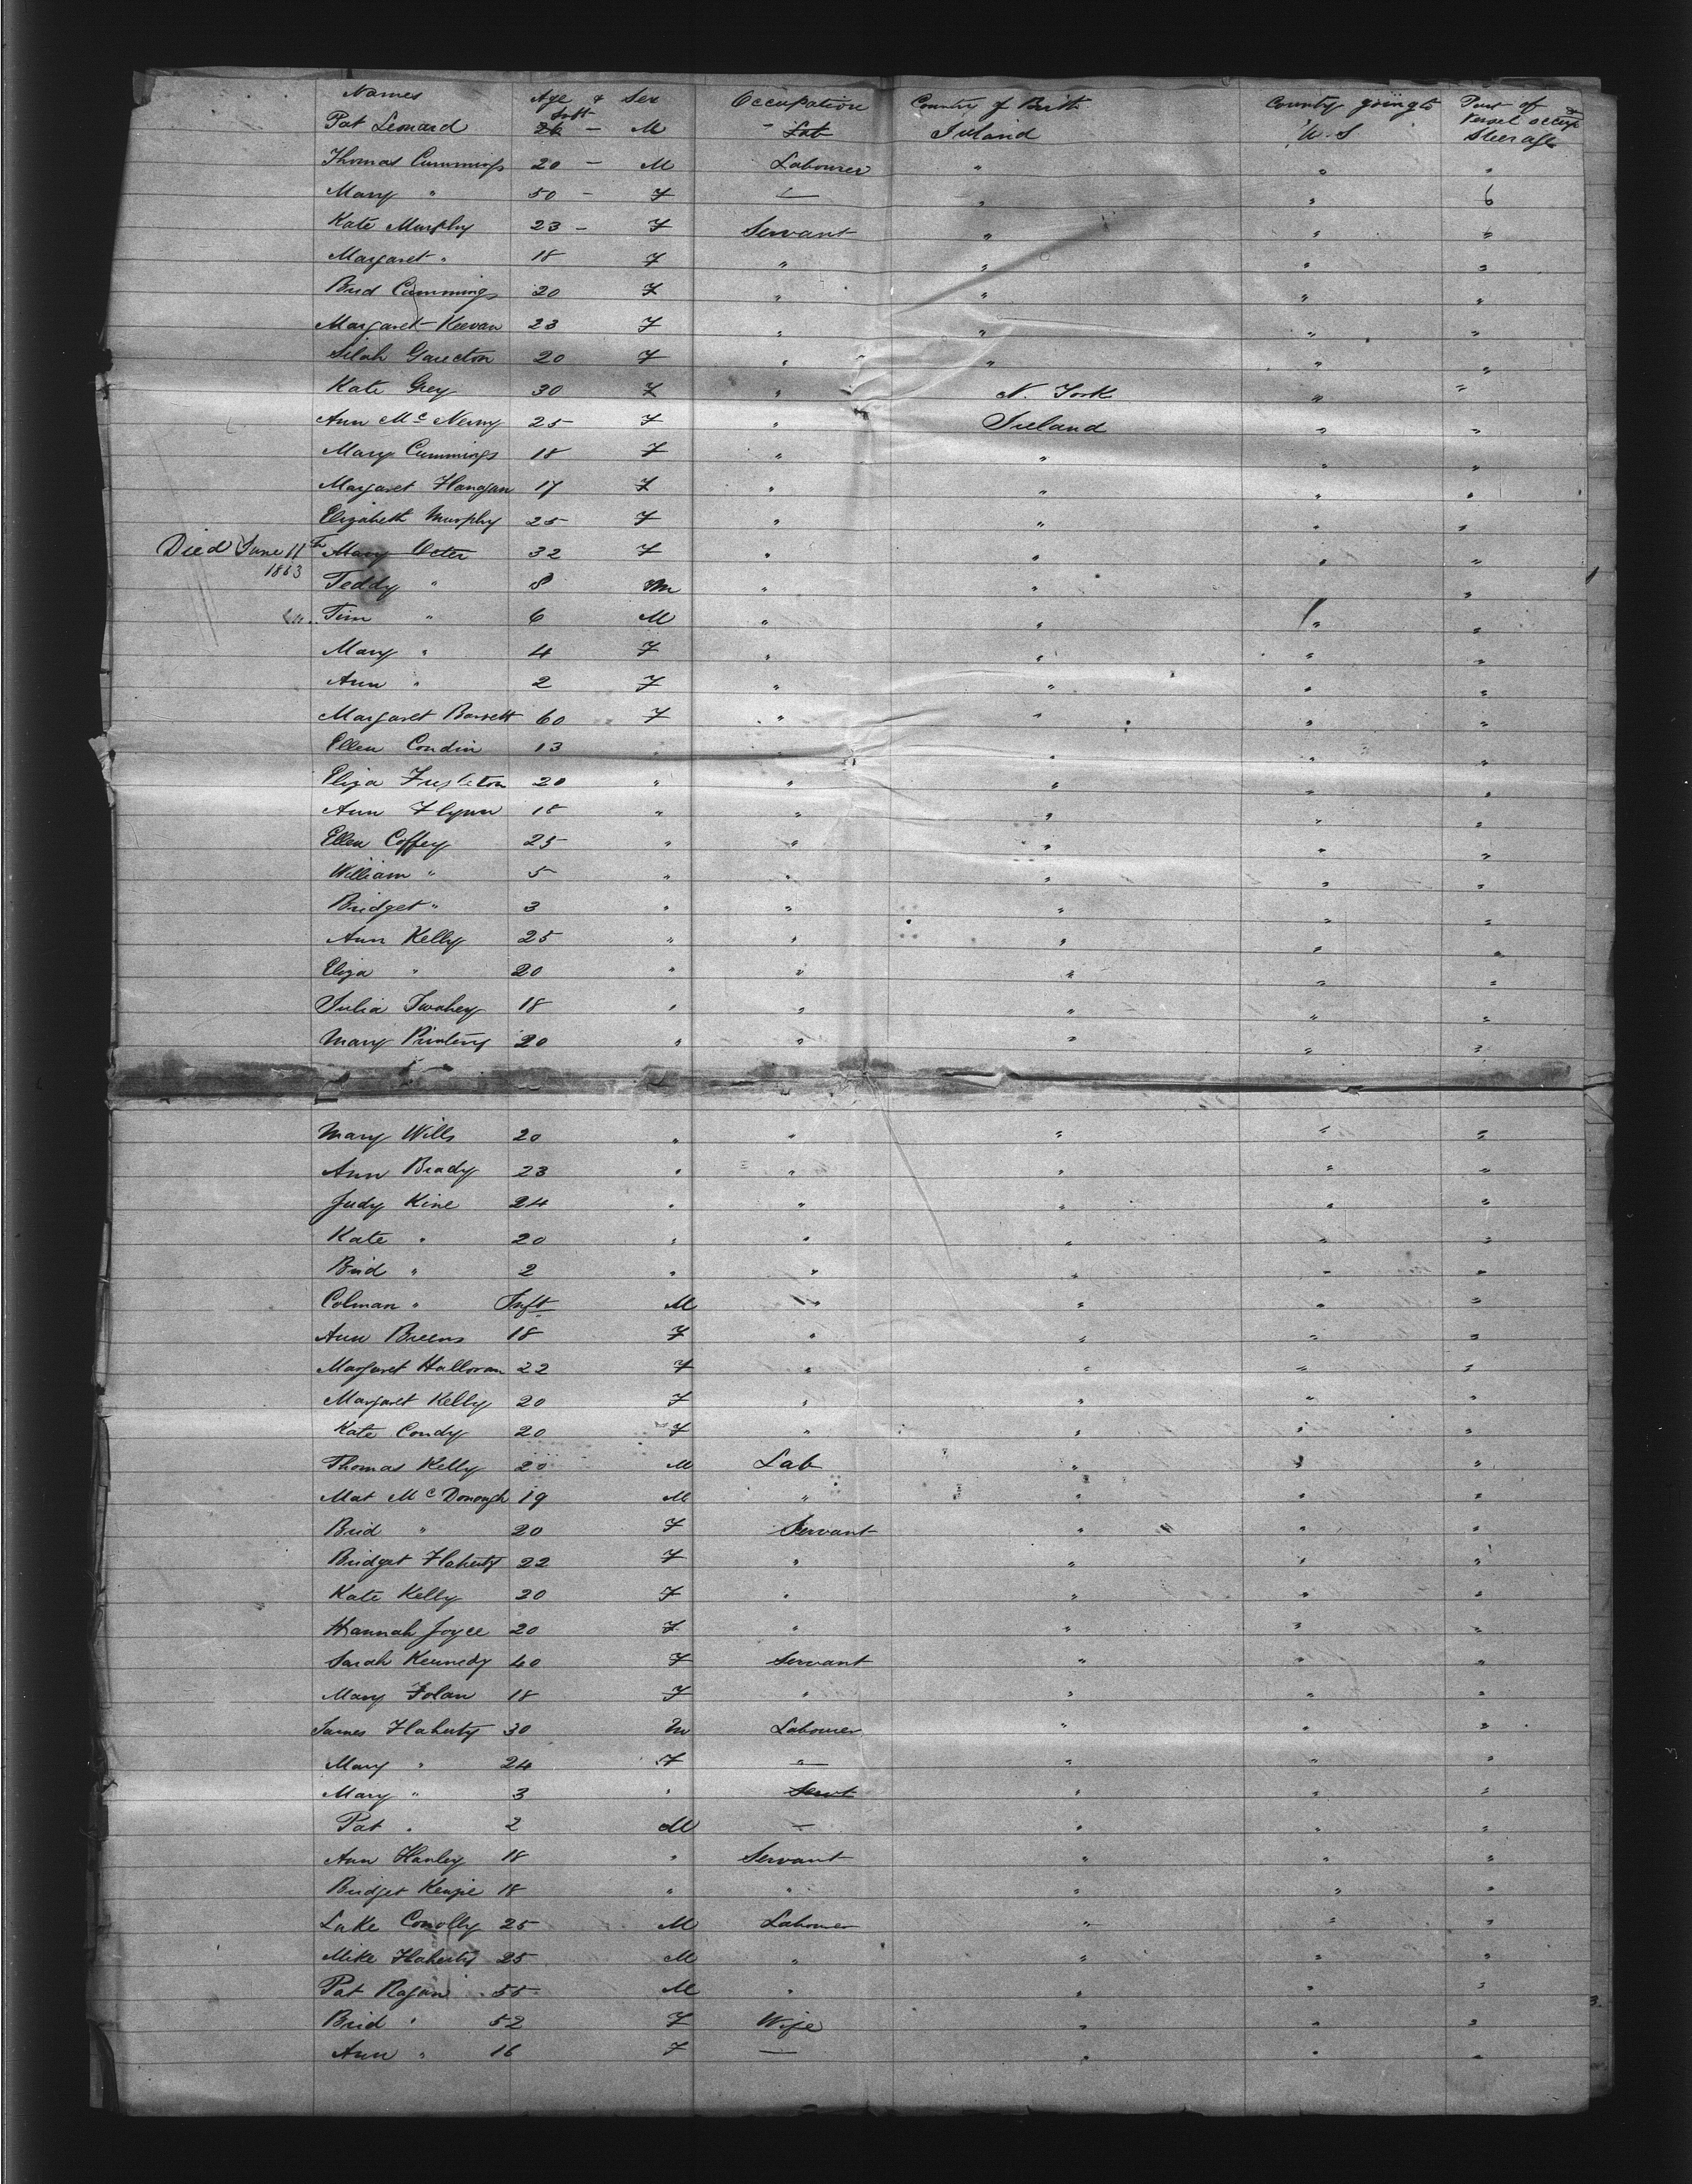 Names Age & Sex Occupation Country of Birth County going to Part of Vessel occup
Pat Leonard 26 Inft - M - Lab Ireland U.S Steerage
Thomas Cummings 20 - M Labourer " " "
Mary " 50 - F — " "
Kate Murphy 23 - F Servant " " "
Margaret " 18 F " " " "
Brid Cummings 20 F " " " "
Margaret Keevan 23 F " " " "
Silah 20 F " " " "
Kate Grey 30 F " N. York " "
Ann Mc Nerny 25 F " Ireland " "
Mary Cummings 18 F " " " "
Margaret Flanagan 17 F " " " "
Elizabeth Murphy 25 F " " " "
Died June 11th 1863 Mary Oeter 32 F " " " "
Teddy " 8 M " " "
Tim " 6 M " " " "
Mary " 4 F " " " "
Ann " 2 F " " " "
Margaret Barrett 60 F " " " "
Ellen Condin 13 " " " " "
Eliza 20 " " " " "
Ann Flynn 18 " " " " "
Ellen Coffey 25 " " " " "
William " 5 " " " " "
Bridget " 3 " " " " "
Ann Kelly 25 " " " " "
Eliza " 20 " " " " "
Julia Twohey 18 " " " " "
Mary 20 " " " " "
Mary Wills 20 " " " " "
Ann Brady 23 " " " " "
Judy Kine 24 " " " " "
Kate " 20 " " " " "
Brid " 2 " " " " "
Colman " Inft M " " " "
Ann Breens 18 F " " " "
Margaret Halloran 22 F " " " "
Margaret Kelly 20 F " " " "
Kate Condy 20 F " " " "
Thomas Kelly 20 M Lab " " "
Mat McDonough 19 M " " " "
Brid " 20 F Servant " " "
Bridget Flaherty 22 F " " " "
Kate Kelly 20 F " " " "
Hannah Joyce 20 F " " " "
Sarah Kennedy 40 F Servant " " "
Mary Folan 18 F " " " "
James Flaherty 30 M Labourer " " "
Mary " 24 F — " " "
Mary " 3 " Servt " " "
Pat " 2 M — " " "
Ann Hanley 18 " Servant " " "
Bridget Kenzie 18 " " " " "
Luke Conolly 25 M Labourer " " "
Mike Flaherty 25 M " " " "
Pat Ragan 55 M " " " "
Brid " 52 F Wife " " "
Ann " 16 F — " " "